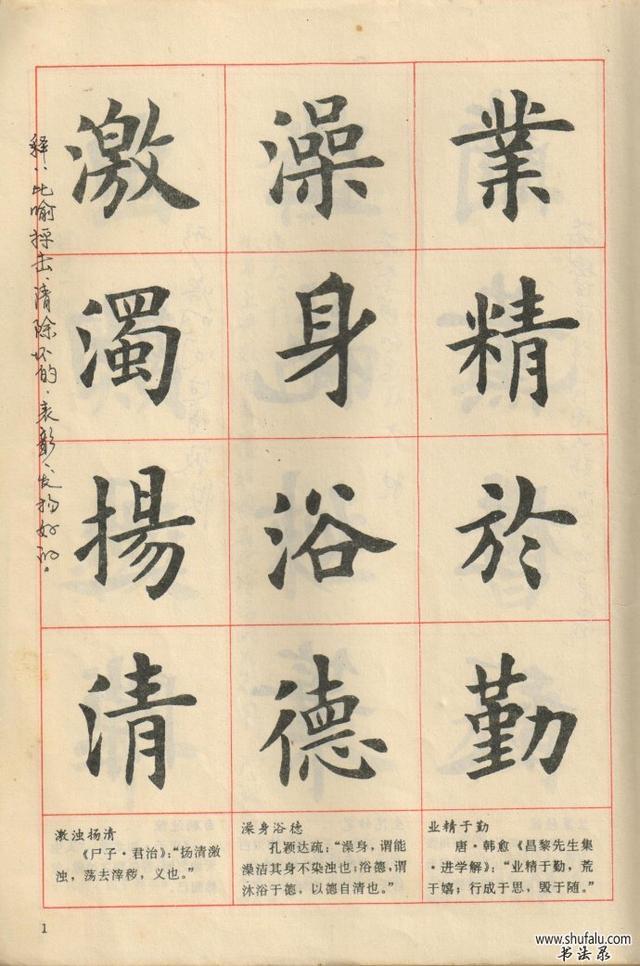 業精於勤
澡身浴德
激濁揚清
释：比喻抨击、清除坏的，表彰、发扬好的。
业精于勤
唐·韩愈《昌黎先生集
·进学解》：“业精于勤，荒
于嬉；行成于思，毁于随。”
澡身浴德
孔颖达疏：“澡身，谓能
澡洁其身不染浊也；浴德，谓
沐浴于德，以德自清也。”
激浊扬清
《尸子·君治》：“扬清激
浊，荡去滓秽，义也。”
1
www.shufalu.com
书法录